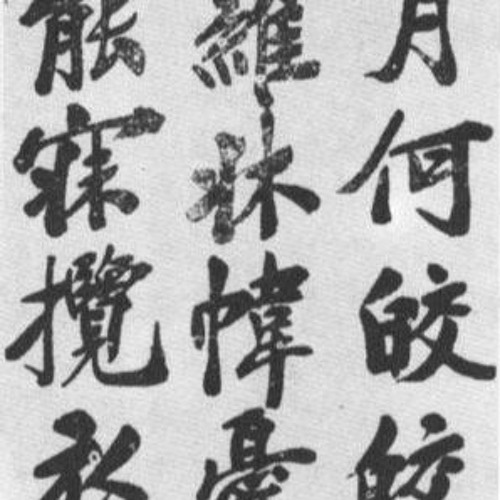 月何皎皎
羅牀幃憂
能寐攬衣